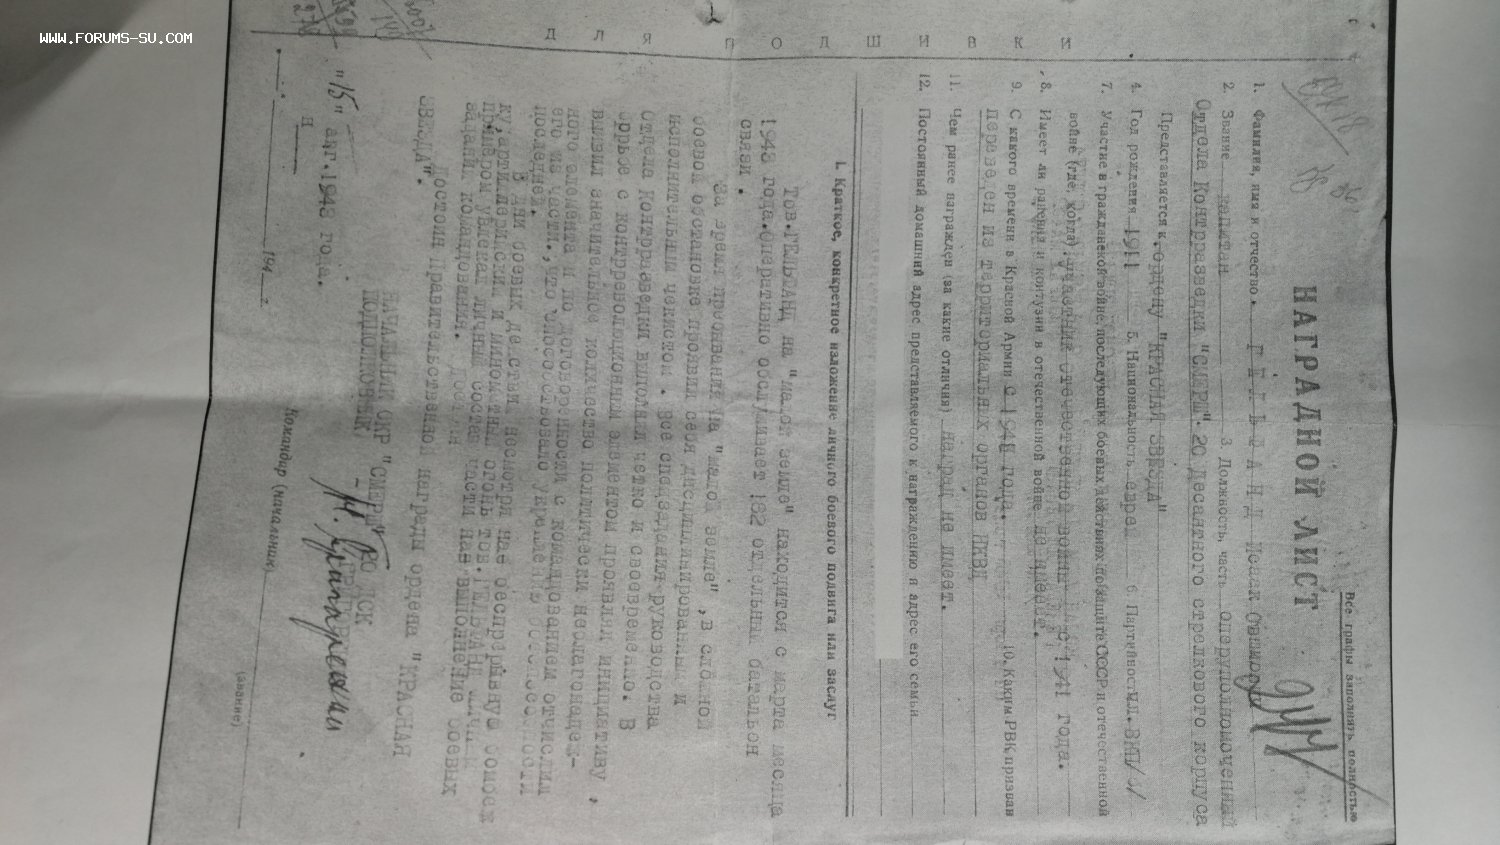 WWW.FORUMS-SU.COM
Все графы заполнять полностью
НАГРАДНОЙ ЛИСТ
1. Фамилия, имя и отчество. ГЕЛЬФАНД Исаак
2. Звание капитан 3 Должность, часть Оперуполномоченный
Отдела Контрразведки "СМЕРШ". 20 Десантного стрелкового корпуса
Представляется к ордену "КРАСНАЯ ЗВЕЗДА"
4. Год рождения 1911 5. Национальность еврей 6. Партийность
7. Участие в гражданской войне, последующих боевых действиях по защите СССР и отечественной
войне (где, когда) участник отечественной войны с 1941 года.
8. Имеет ли ранения и контузии в отечественной войне не имеет.
9. С какого времени в Красной Армии 10. Каким РВК призван
переведен из территориальных органов НКВД
11. Чем ранее награжден (за какие отличия) наград не имеет.
12. Постоянный домашний адрес представляемого к награждению и адрес его семьи
ДЛЯ ПОДШИВКИ
I. Краткое, конкретное изложение личного боевого подвига или заслуг
Тов. ГЕЛЬФАНД на "малой земле" находится с марта месяца
1943 года. Оперативно обслуживает 162 отдельный батальон
связи.
За время пребывания на "малой земле", в сложной
боевой обстановке проявил себя дисциплинированным и
исполнительным чекистом. Все спецзадания руководства
Отдела Контрразведки выполнял четко и своевременно. В
борьбе с контрреволюционным элементом проявлял инициативу,
выявил значительное количество политически неблагонадеж-
ного элемента и по договоренности с командованием отчислил
его из части, что способствовало укреплению
последней.
В дни боевых действий несмотря на беспрерывную бомбеж-
ку, артиллерийский и минометный огонь тов. ГЕЛЬФАНД личным
примером увлекал личный состав части на выполнение боевых
заданий командования.
Достоин правительственной награды ордена "КРАСНАЯ
ЗВЕЗДА".
НАЧАЛЬНИК ОКР "СМЕРШ"
ПОДПОЛКОВНИК -
"15" авг. 1943 года.
Командир (начальник)
(звание)
194 г.